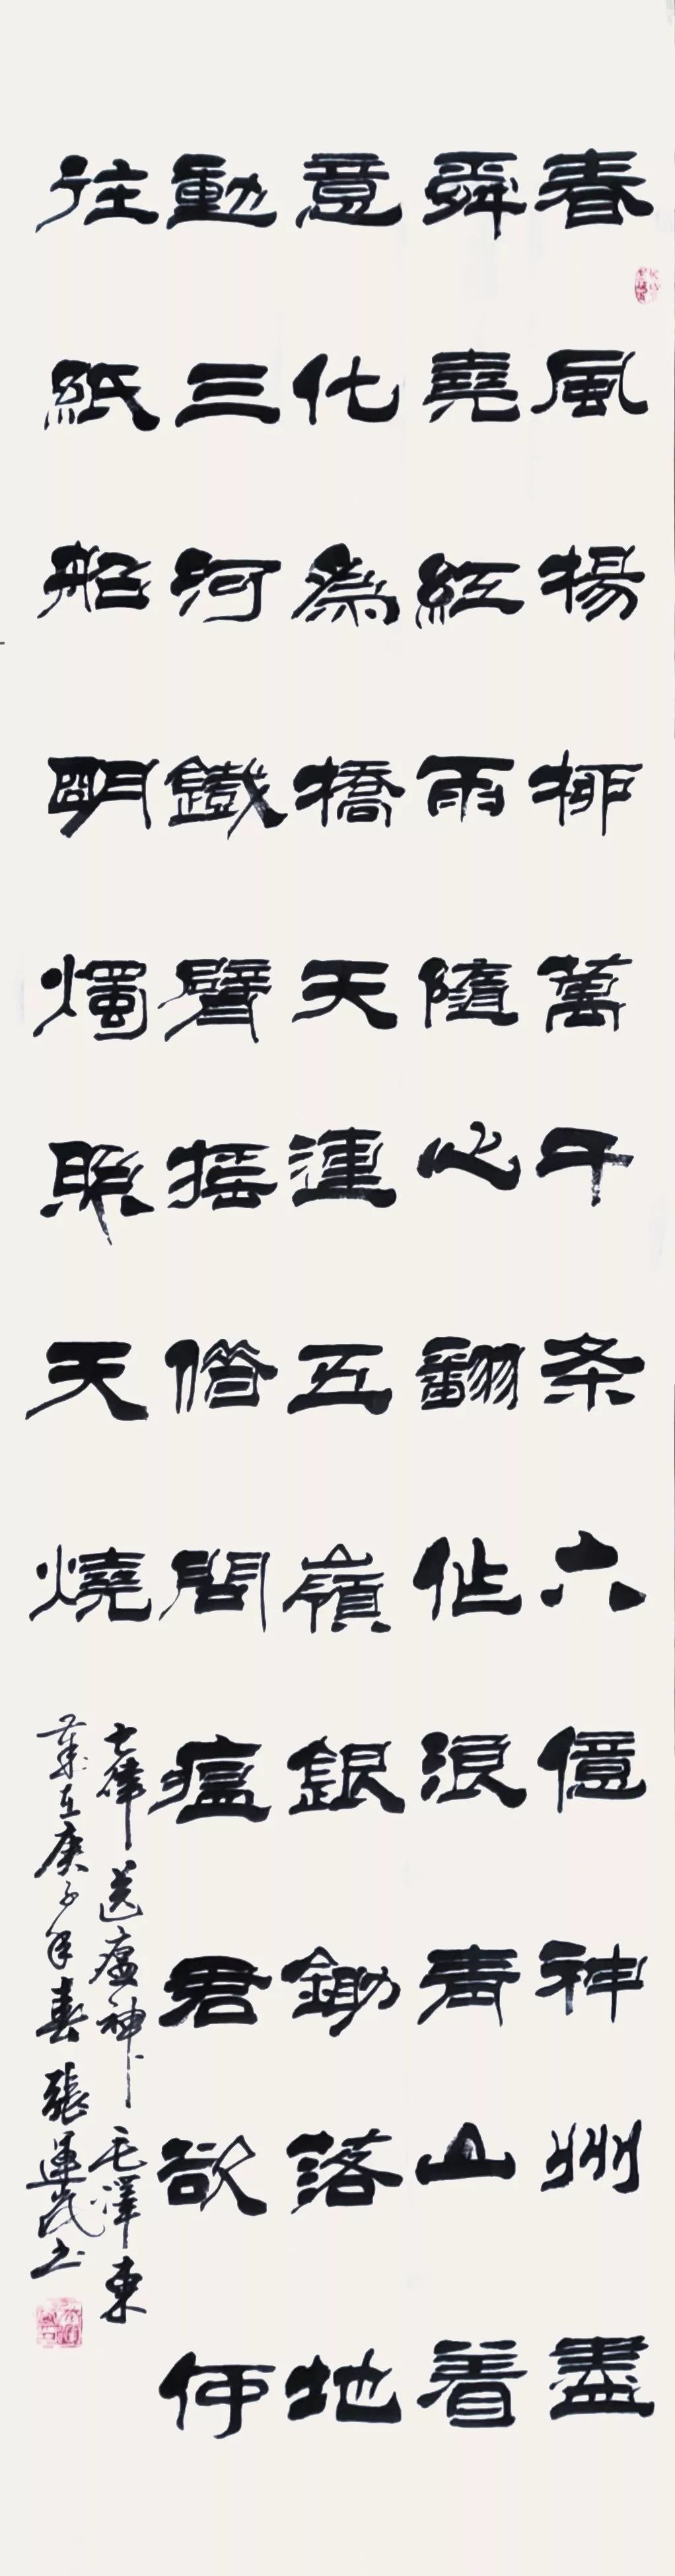 春風楊柳萬千条六億神州盡
舜堯紅雨隨心翻作浪青山着
意化爲橋天連五嶺銀鋤落地
動三河鐵臂搖借問瘟君欲何
往紙船明燭照天燒
七律 送瘟神 毛澤東
歲在庚子年春 張運民书